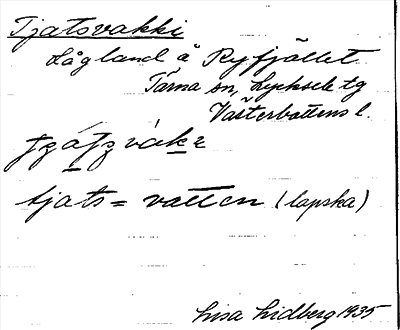 Tjatsvakki
Lågland å Ryfjället
Tärna sn, Lycksele tg
Västerbottens l.
tjats = vatten (lapska)
Lisa Lidberg 1935